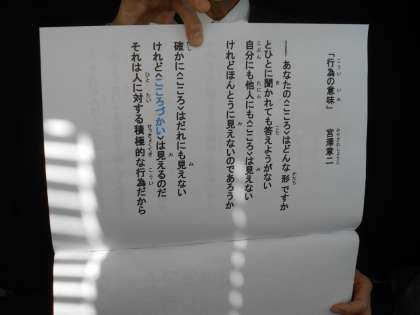 「行為の意味」
宮澤章二
――あなたの〈こころ〉はどんな形ですか
とひとに聞かれても答えようがない
自分にも他人にも〈こころ〉は見えない
けれどほんとうに見えないのであろうか
確かに〈こころ〉はだれにも見えない
けれど〈こころづかい〉は見えるのだ
それは人に対する積極的な行為だから